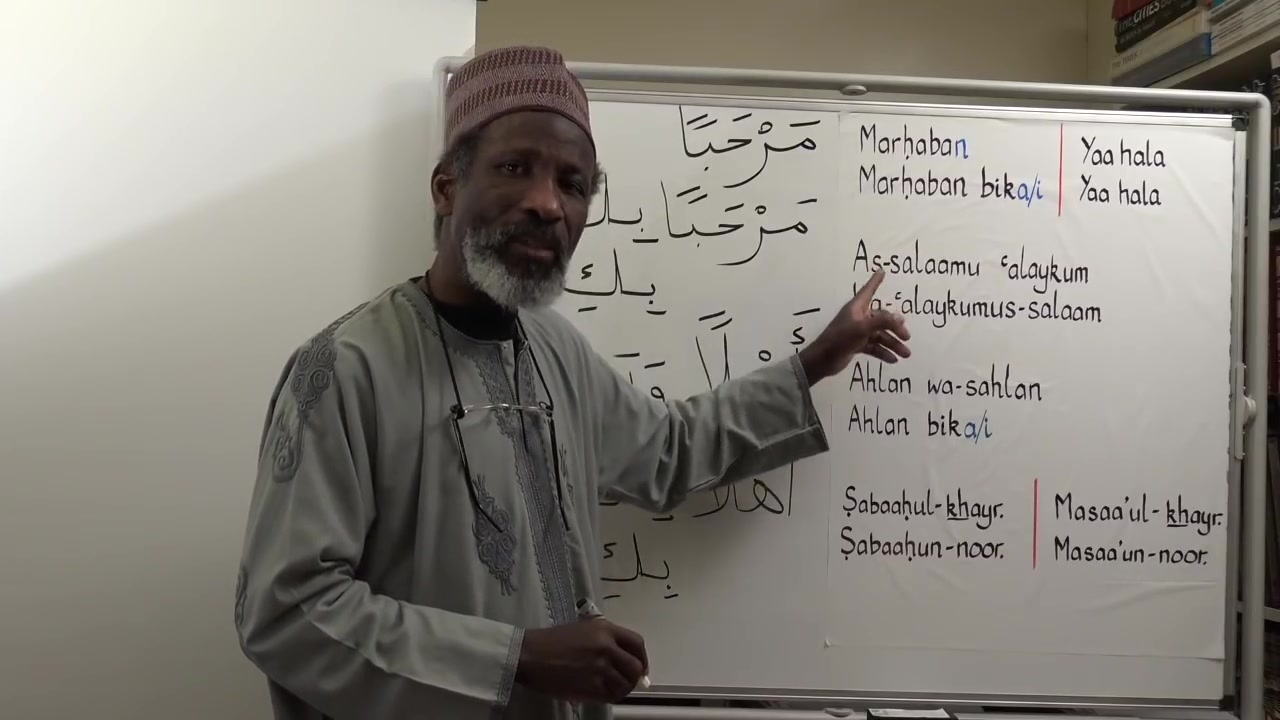 THE CITIES
مَرْحَبًا
مَرْحَبًا بِكَ
بِكِ
أَهْلًا
أهلًا
بِكِ
Marḥaban
Marḥaban bika/i
Yaa hala
Yaa hala
As-salaamu ʿalaykum
Wa-ʿalaykumus-salaam
Ahlan wa-sahlan
Ahlan bika/i
Ṣabaaḥul-khayr.
Ṣabaaḥun-noor.
Masaa'ul-khayr.
Masaa'un-noor.